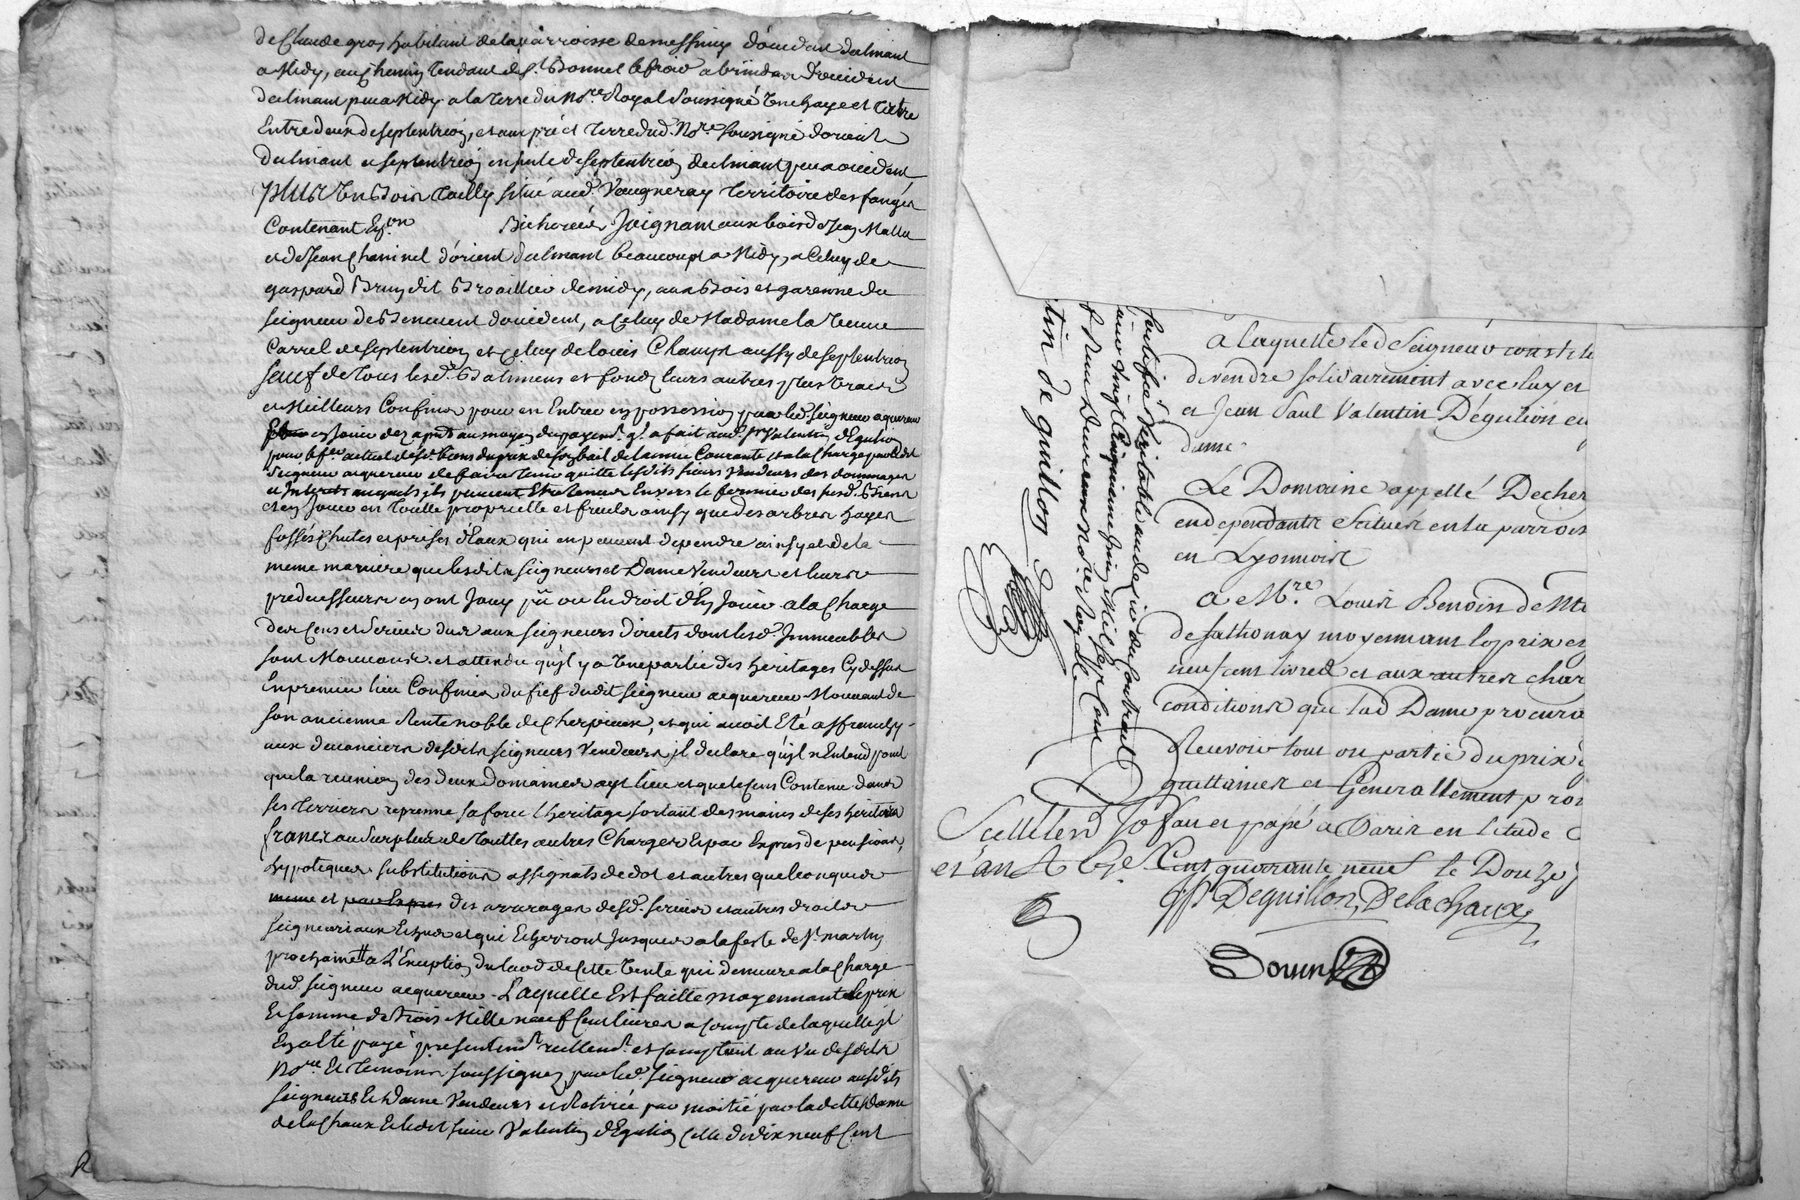 de Claude gros habitant de la parroisse de messimy d'occident declinant
a Midy, au chemin tendant de St. Bonnet le froid a brindas d'occident
declinant peu a Midy a la terre du nore. Royal soussigné haye et tiltre
Entre deux de septentrion, et aux pré et terre dud. nore. soussigné d'orient
declinant a septentrion en partie de septentrion declinant peu a occident
plus un bois tailly situé aud. Vaugneray territoire des fanges
Contenant Eon. Bicherées Joignant aux bois de Jean Mallu
et de Jean Chaninel d'orient declinant beaucoup a Midy, a celuy de
gaspard Brun dit Broaillie de midy, aux Bois et garenne du
seigneur de Benevent d'occident, a Celuy de Madame la veuve
Carrel de septentrion et celuy de louis Champt aussy de septentrion
sauf de tous lesd. Batimens et fonds leurs autres plus vrais
et Meilleurs Confins pour en Entrer en possession par led. seigneur acquereur
et en Jouir dez a pnt au moyen du payent. ql. a fait aud. sr Valentin d'Eguilion
pour le fer. actuel desd. biens du prix de son bail de l'année Courante et a la charge par led.
seigneur acquereur de faire tenir quitte lesdits sieurs vendeurs des dommages
et Interets auxquels ils peuvent Etre tenus Envers le fermier des susd. Biens
et en Jouir en toutte proprietté et fruits ainsy que des arbres hayes
fossés Chutes et prises d'Eaux qui en peuvent dependre ainsy et de la
meme maniere que lesdits seigneurs et Dame Vendeurs et leurs
predecesseurs en ont Jouy pû ou eu droit d'En Jouir a la Charge
des Cens et Servis dus aux seigneurs directs dont lesd. Immeubles
sont Mouvans. et attendu qu'il y a une partie des heritages Cy dessus
En premier lieu Confinés du fief dudit seigneur acquereur Mouvant de
son ancienne Rente noble de Cherpieux, et qui avoit Eté affranchy
aux devanciers desdits seigneurs Vendeurs, il declare qu'il n'Entend point
que la reunion des deux domaines ayt lieu et que le Cens Contenu dans
ses terriers reprenne sa force l'heritage sortant des mains de ses heritiers
francs au Surplus de touttes autres Charges Et par Expres de pensions,
hypoteques substitutions assignats de dot et autres quelconques
meme et par Expres des arrerages desd. servis et autres droits
seigneuriaux Echus et qui Echerront Jusques a la feste de St. martin
prochaine a L'Exception du laod de cette Vente qui demeure a la Charge
dud. seigneur acquereur. Laquelle Est faitte moyennant le prix
Et somme de trois Mille neuf Cent livres a compte de laquelle il
En a Eté payé presentemt. reellemt. et comptant au vu desdits
Nore. Et temoins soussignez par led. seigneur acquereur ausdits
seigneurs Et Dame Vendeurs et Retirée par moitié par ladette dame
de la Chaux Et ledit sieur Valentin d'Eguilion celle de dix neuf Cent
certifié Veritable au desir du Contrat
Vingt Cinquieme Juin Mil sept Cent
Nore. Royal
tin De guillon
à laquelle led Seigneur constitu
de vendre solidairement avec luy et
et Jean Paul Valentin Déguilion eu
dame
Le Domaine appellé Decher
en dependants Scitués en la parrois
en Lyonnois
a Mre. Louis Benoin de
de sathonay moyennant le prix et
neuf cent livres et aux autres char
conditions que lad Dame procura
Recevoir tout ou partie du prix
quittances et Generallement pro
Scellé led Jo Fait et passé à Paris en l'Etude
et an Sept Cens quarrante neuf le Douze
Deguillon, Delachaux